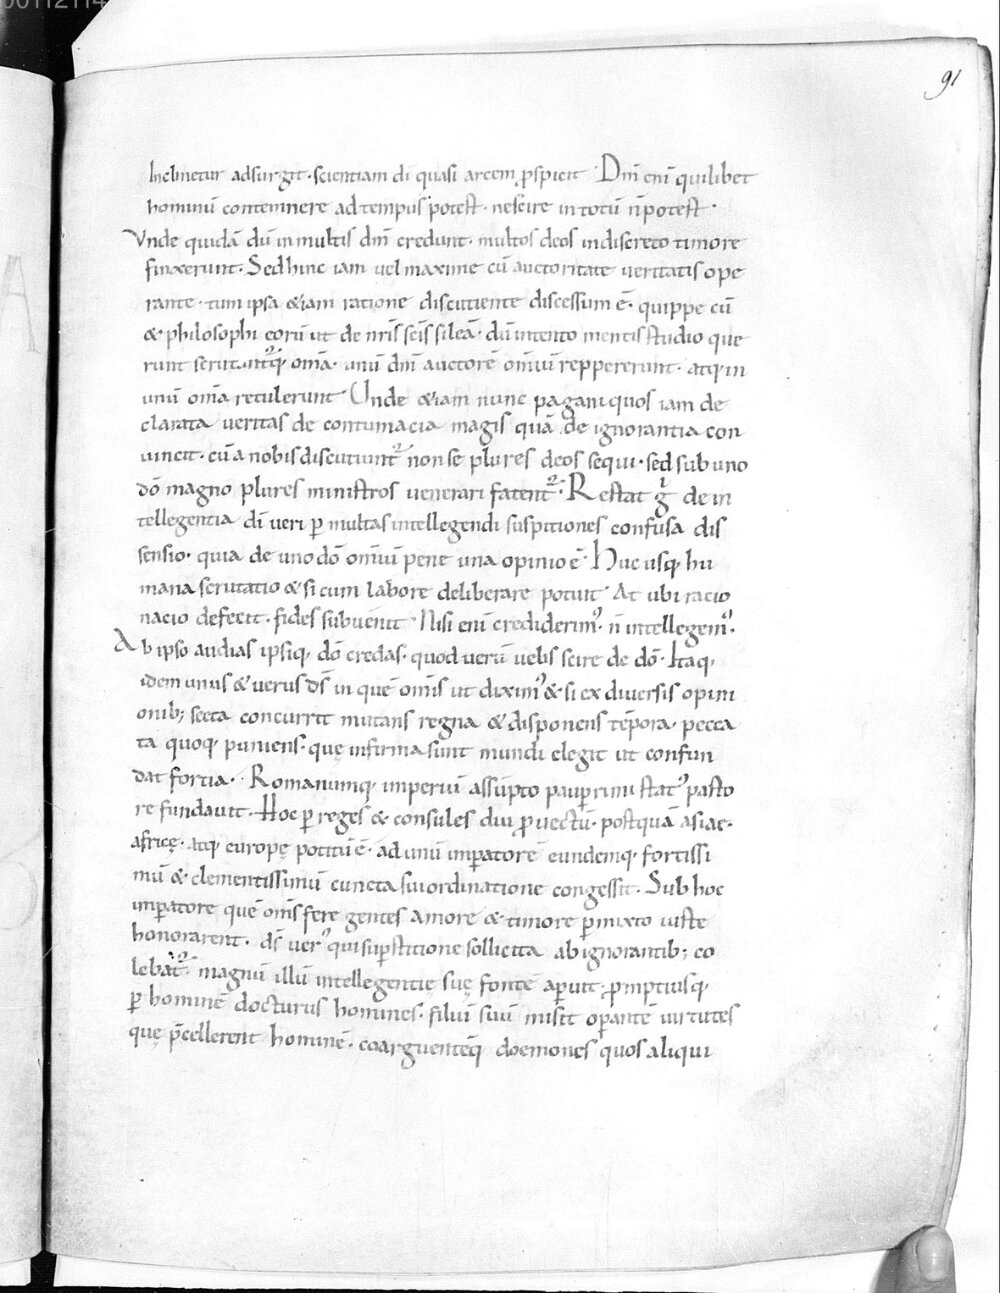 00112114
91
Inclinetur adsurgit· scientiam dī quasi arcem ꝓspicit· Dm̄ enī quilibet
hominū contemnere ad tempus potest· nescire in totū n̄ potest·
Vnde quidā dū in multis dm̄ credunt· multos deos indiscreto timore
finxerunt· Sed hinc iam vel maxime cū auctoritate veritatis ope
rante· tum ipsa &iam ratione discutiente discessum ē· quippe cū
& philosophi eorū ut de nr̄is sc̄is sileā· dū intento mentis studio que
runt scrutantꝰqꝫ om̄a· unū dm̄ auctorē om̄iū reppererunt· atqꝫ in
unū om̄a retulerunt· Unde &iam nunc pagani quos iam de
clarata veritas de contumacia magis quā de ignorantia con
vincit· cū a nobis discutiunt᷑ non se plures deos sequi· sed sub uno
dō magno plures ministros venerari fatent᷑· Restat gͥ de in
tellegentia dī veri ꝑ multas intellegendi suspitiones confusa dis
sensio· quia de uno dō om̄iū pene una opinio ē· Huc usqꝫ hu
mana scrutatio & si cum labore deliberare potuit· At ubi racio
nacio defecit· fides subvenit· Nisi enī crediderimꝰ· n̄ intellegemꝰ·
Ab ipso audias ipsiqꝫ dō credas· quod verū velis scire de dō· Itaqꝫ
idem unus & verus ds̄ in quē om̄is ut diximꝰ & si ex diversis opini
onibꝫ secta concurrit mutans regna & disponens tēpora· pecca
ta quoqꝫ puniens· quę infirma sunt mundi elegit ut confun
dat fortia· Romanumqꝫ imperiū assūpto pauꝑrimi statꝰ pasto
re fundavit· Hoc ꝑ reges & consules diu ꝓvectū· postquā asiae·
africę· atqꝫ europę potitū ē· ad unū imꝑatorē eundemqꝫ fortissi
mū & clementissimū cuncta sui ordinatione congessit· Sub hoc
imꝑatore quē om̄s fere gentes amore & timore ꝑmixto iuste
honorarent· ds̄ verꝰ qui suꝑstitione sollicita ab ignorantibꝫ co
lebat᷑· magnū illū intellegentię suę fontē aꝑuit· ꝓmptiusqꝫ
ꝑ hominē docturus homines· filiū suū misit oꝑantē virtutes
quę p̄cellerent hominē· coarguentēqꝫ doemones quos aliqui